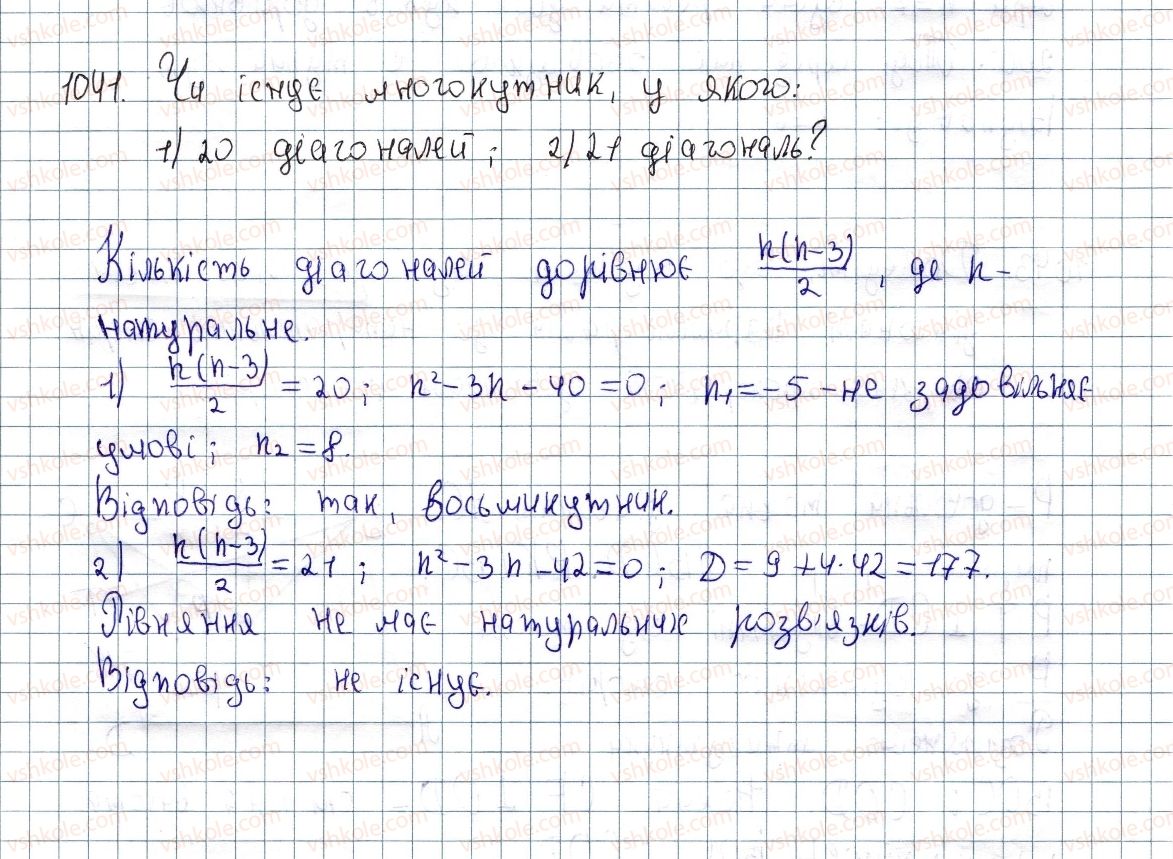 1041. Чи існує многокутник, у якого:
1) 20 діагоналей; 2) 21 діагональ?
Кількість діагоналей дорівнює n(n-3)/2, де n -
натуральне.
1) n(n-3)/2 = 20; n² - 3n - 40 = 0; n₁ = -5 - не задовільняє
умові; n₂ = 8.
Відповідь: так, восьмикутник.
2) n(n-3)/2 = 21; n² - 3n - 42 = 0; D = 9 + 4·42 = 177.
Рівняння не має натуральних розв'язків.
Відповідь: не існує.
vshkole.com